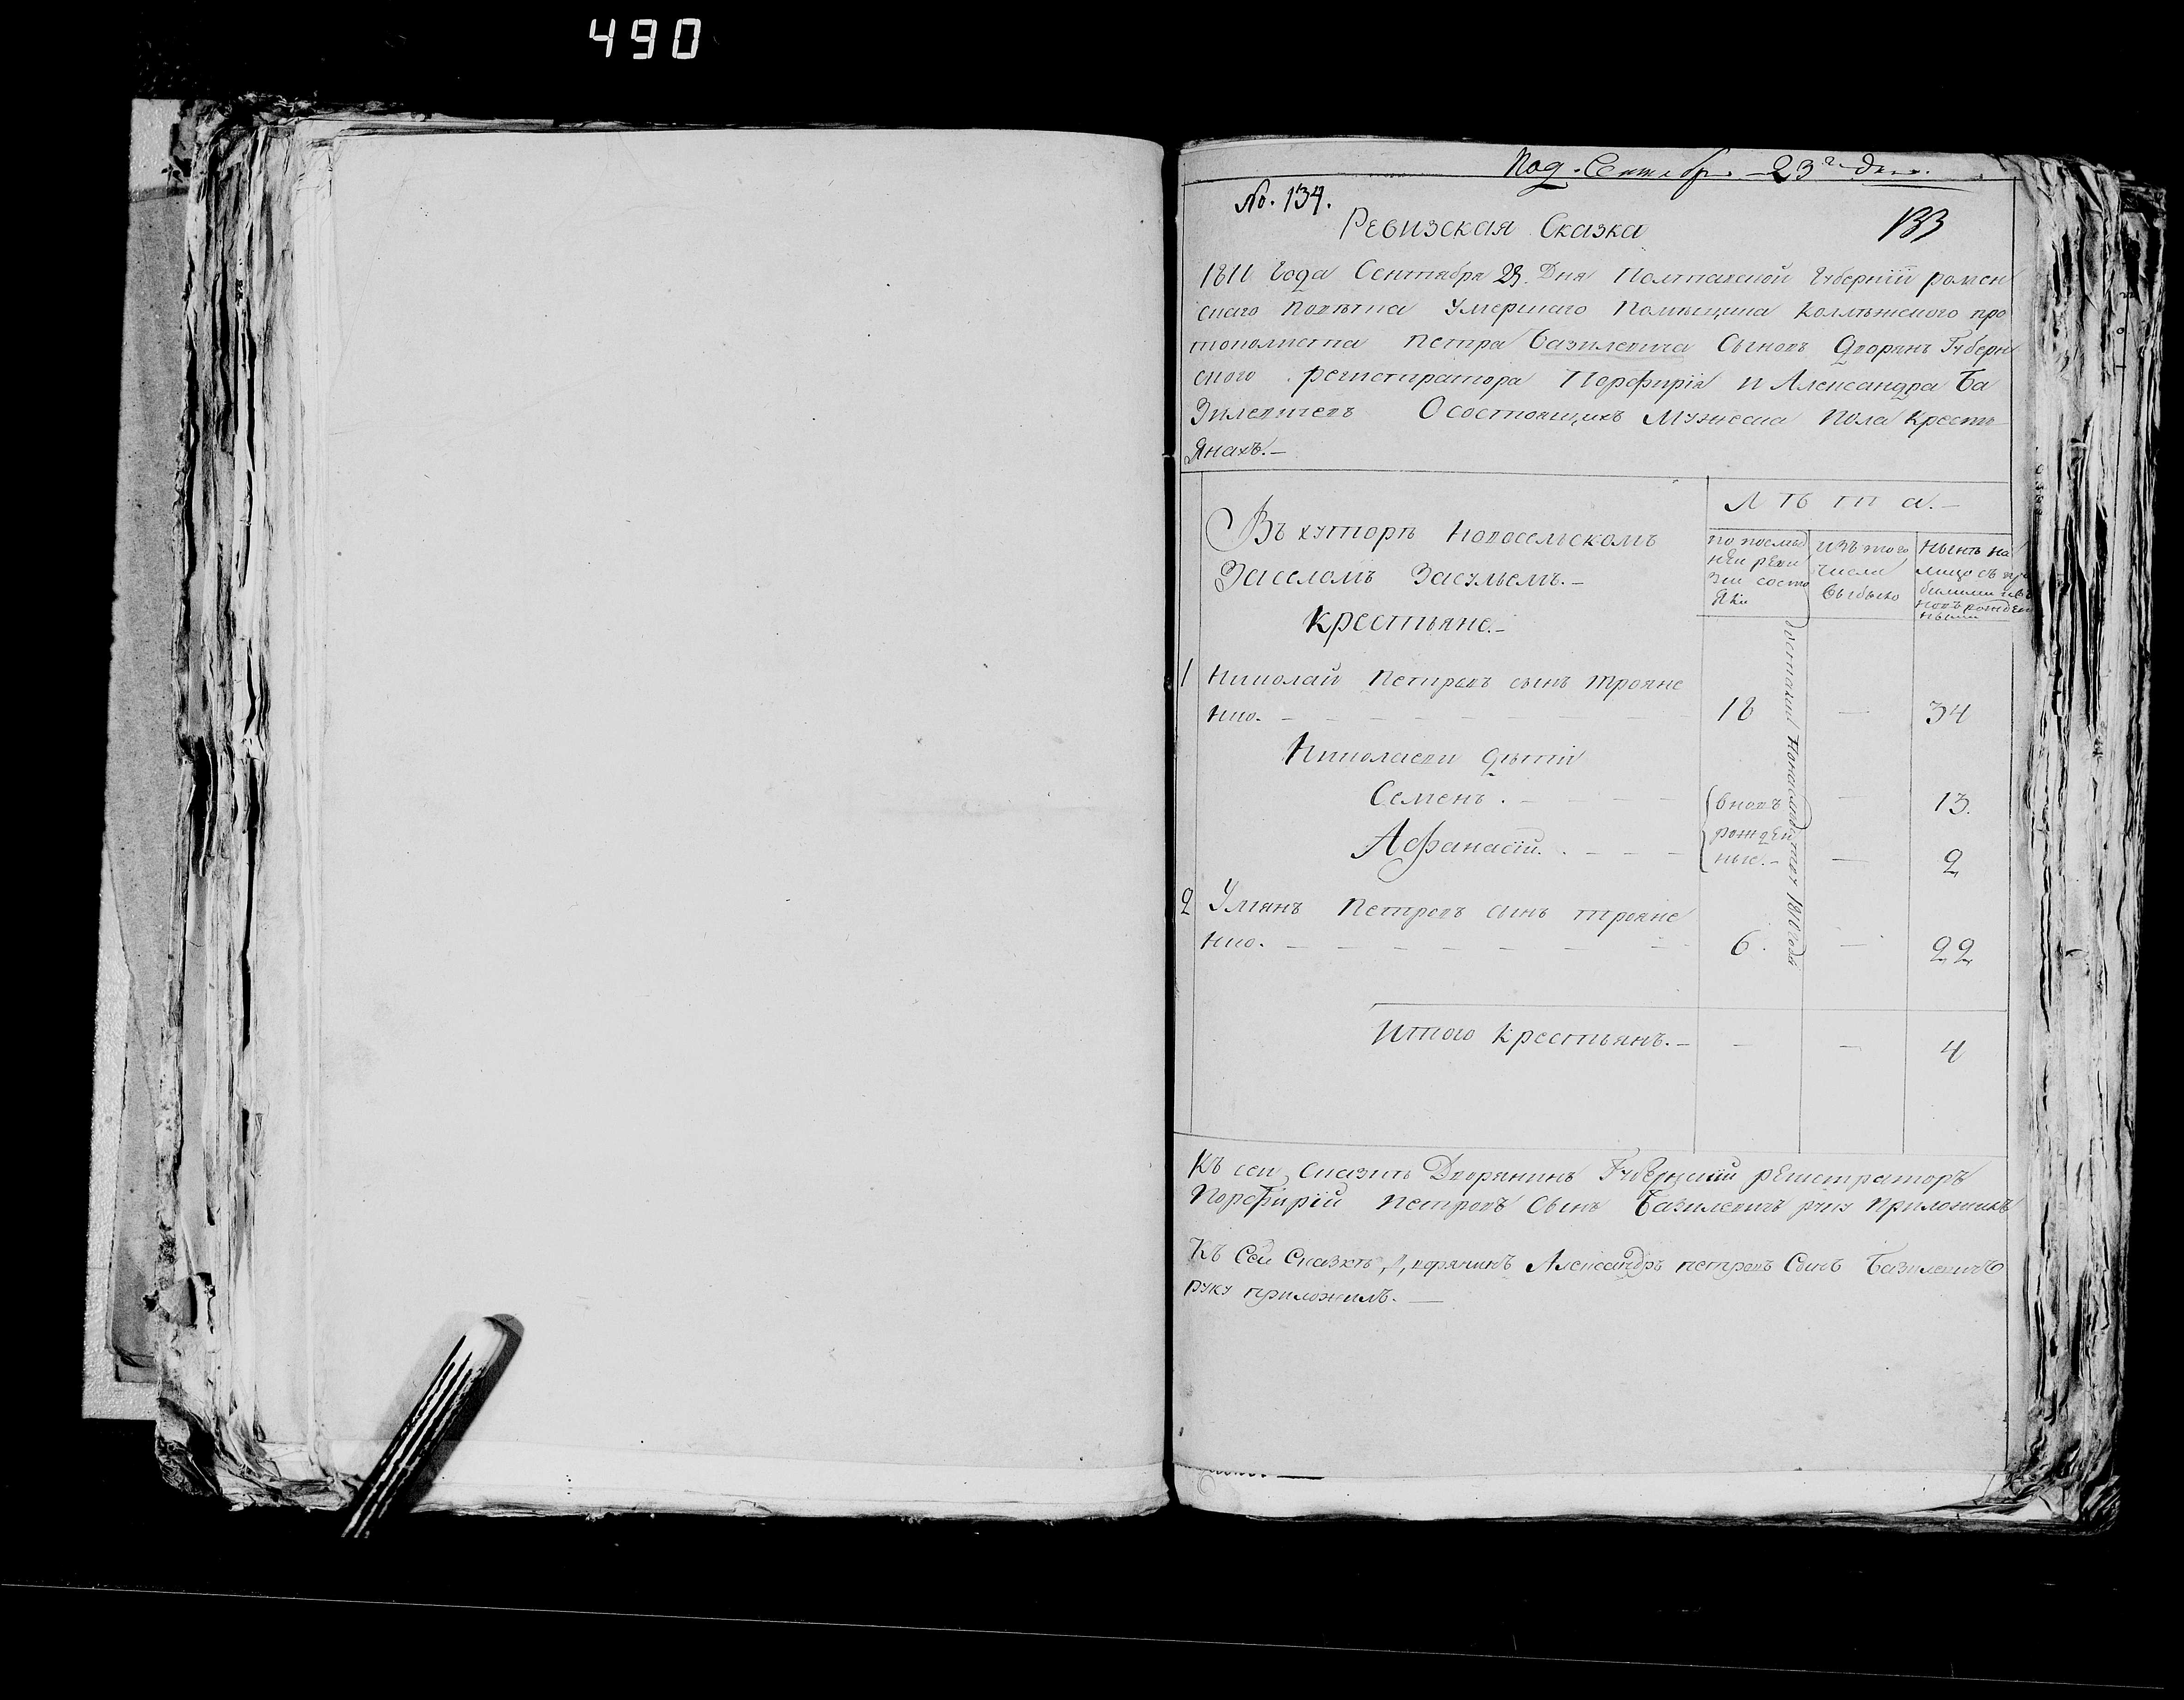 490
Под. Сентябр. 23го дня.
No. 134.
133
Ревизская Сказка
1811 Года Сентября 23. Дня Полтавской Губерніи ромен
скаго Повѣта Умершаго Помѣщика Коллѣжского про
тополиста Петра Базилевича Сыновъ Дворянъ Губерн
ского регистратора Порфирія и Александра Ба
Зилевичевъ О состоящихъ Мужеска Пола Кресть
Янахъ.—
Лѣта.—
Въ хуторѣ Новосельскомъ
Заселомъ Засульемъ.—
Крестьяне.—
по послѣд
нѣй реви
зіи состо
яли
изъ того
числа
выбыло
нынѣ на
лицо
новъ рожден
ными
1 Николай Петровъ сынъ Трояне
нко. — 18 — 34
Николаеви дѣтіи
Семенъ. — 13.
Афанасій. — 2
вновъ
рожден
ные.—
2 Улянъ Петровъ сынъ трояне
нко. — 6. — 22
1811 года
Итого крестьянъ.— — — 4
Къ сей Сказкѣ Дворянинъ Губернскій регистраторъ
Порфирій Петровъ Сынъ Базилевичъ руку Приложилъ
Къ Сей Сказкѣ, Дворянинъ Александръ петровъ Сынъ Базилевичъ
руку приложилъ.—